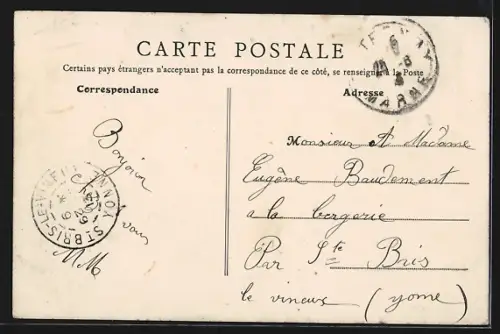 CARTE POSTALE
Certains pays étrangers n'acceptant pas la correspondance de ce côté, se renseigner à la Poste
Correspondance
Adresse
Bonjour
vous
MM
Monsieur et Madame
Eugène Baudement
a la bergerie
Par Ste Bris
le vineux (yonne)
MARNE
ST BRIS-LE-VINEUX YONNE